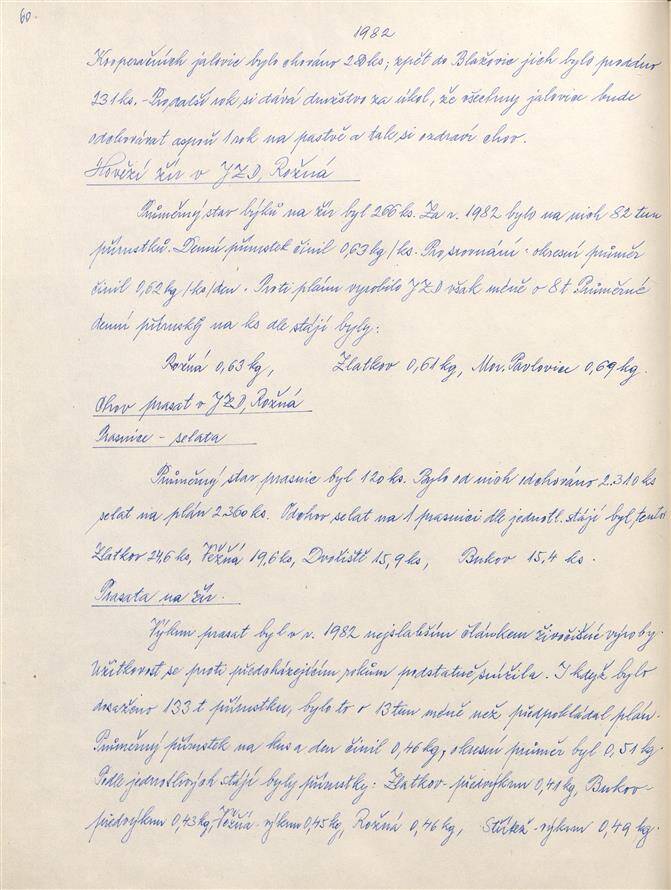 60.
1982
Kooperačních jalovic bylo chováno 28 ks; zpět do Blažovic jich bylo prodáno
231 ks. Pro další rok si dává družstvo za úkol, že všechny jalovice bude
odchovávat aspoň 1 rok na pastvě a tak si ozdraví chov.
Hovězí žír v JZD, Rožná
Průměrný stav býků na žír byl 266 ks. Za r. 1982 bylo na nich 82 tun
přírustků. Denní přírustek činil 0,63 kg/ks. Pro srovnání - okresní průměr
činil 0,62 kg/ks/den. Proti plánu vyrobilo JZD však méně o 8 t Průměrné
denní přírustky na ks dle stájí byly:
Rožná 0,63 kg, Zlatkov 0,61 kg, Mor. Pavlovice 0,69 kg.
Chov prasat v JZD, Rožná
Prasnice - selata
Průměrný stav prasnic byl 120 ks. Bylo od nich odchováno 2.310 ks
selat na plán 2360 ks. Odchov selat na 1 prasnici dle jednotl. stájí byl tento:
Zlatkov 24,6 ks, Věžná 19,6 ks, Dvořiště 15,9 ks, Bukov 15,4 ks.
Prasata na žír.
Výkrm prasat byl v r. 1982 nejslabším článkem živočišné výroby.
Užitkovost se proti předcházejícím rokům podstatně snížila. I když bylo
dosaženo 133 t přírustku, bylo to o 13 tun méně než předpokládal plán.
Průměrný přírustek na kus a den činil 0,46 kg, okresní průměr byl 0,51 kg.
Podle jednotlivých stájí byly přírustky: Zlatkov - předvýkrm 0,41 kg, Bukov -
předvýkrm 0,43 kg, Věžná - výkrm 0,45 kg, Rožná 0,46 kg, Střítež - výkrm 0,49 kg.